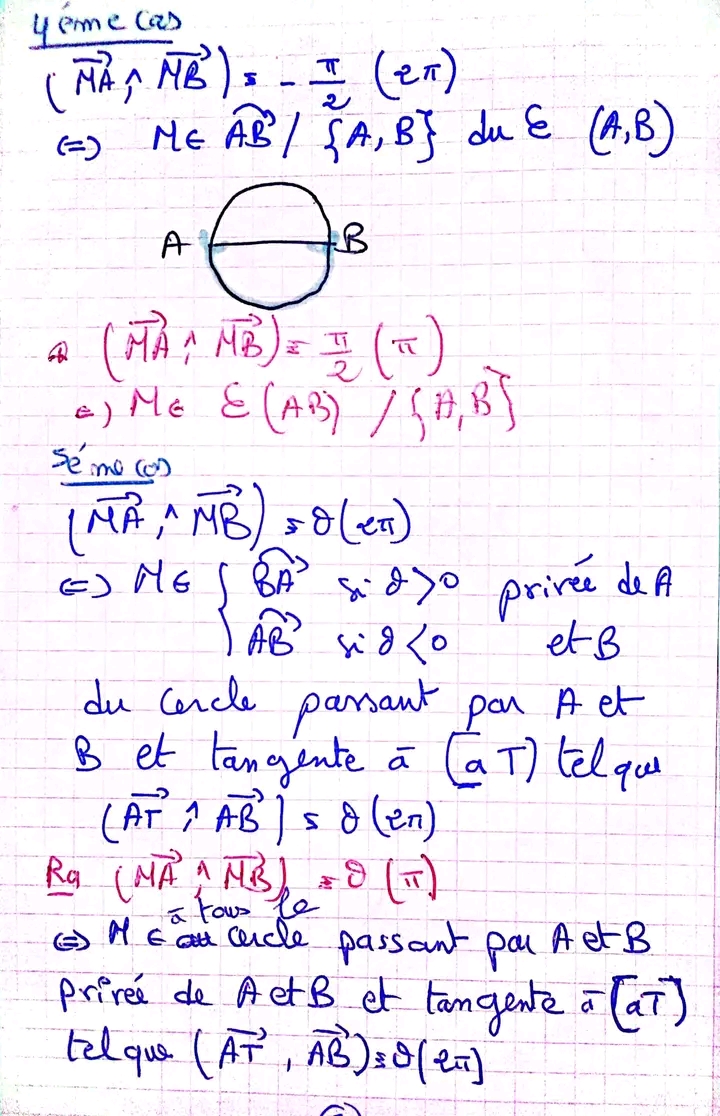 4éme cas
(MA⃗ ^, MB⃗) ≡ - π/2 (2π)
⇔ M ∈ AB⃗ / {A, B} du ℰ (A,B)
A B
(MA⃗ ^, MB⃗) ≡ π/2 (π)
⇔ M ∈ ℰ(AB) / {A, B}
5éme cas
(MA⃗ ^, MB⃗) ≡ θ (2π)
⇔ M ∈ { BA⃗ si θ > 0 privée de A
AB⃗ si θ < 0 et B
du cercle passant par A et
B et tangente à [aT) tel que
(AT⃗ ^, AB⃗) ≡ θ (2π)
Rq (MA⃗ ^, MB⃗) ≡ θ (π)
à tous le
⇔ M ∈ cercle passant par A et B
privée de A et B et tangente à [aT)
tel que (AT⃗, AB⃗) ≡ θ [2π]